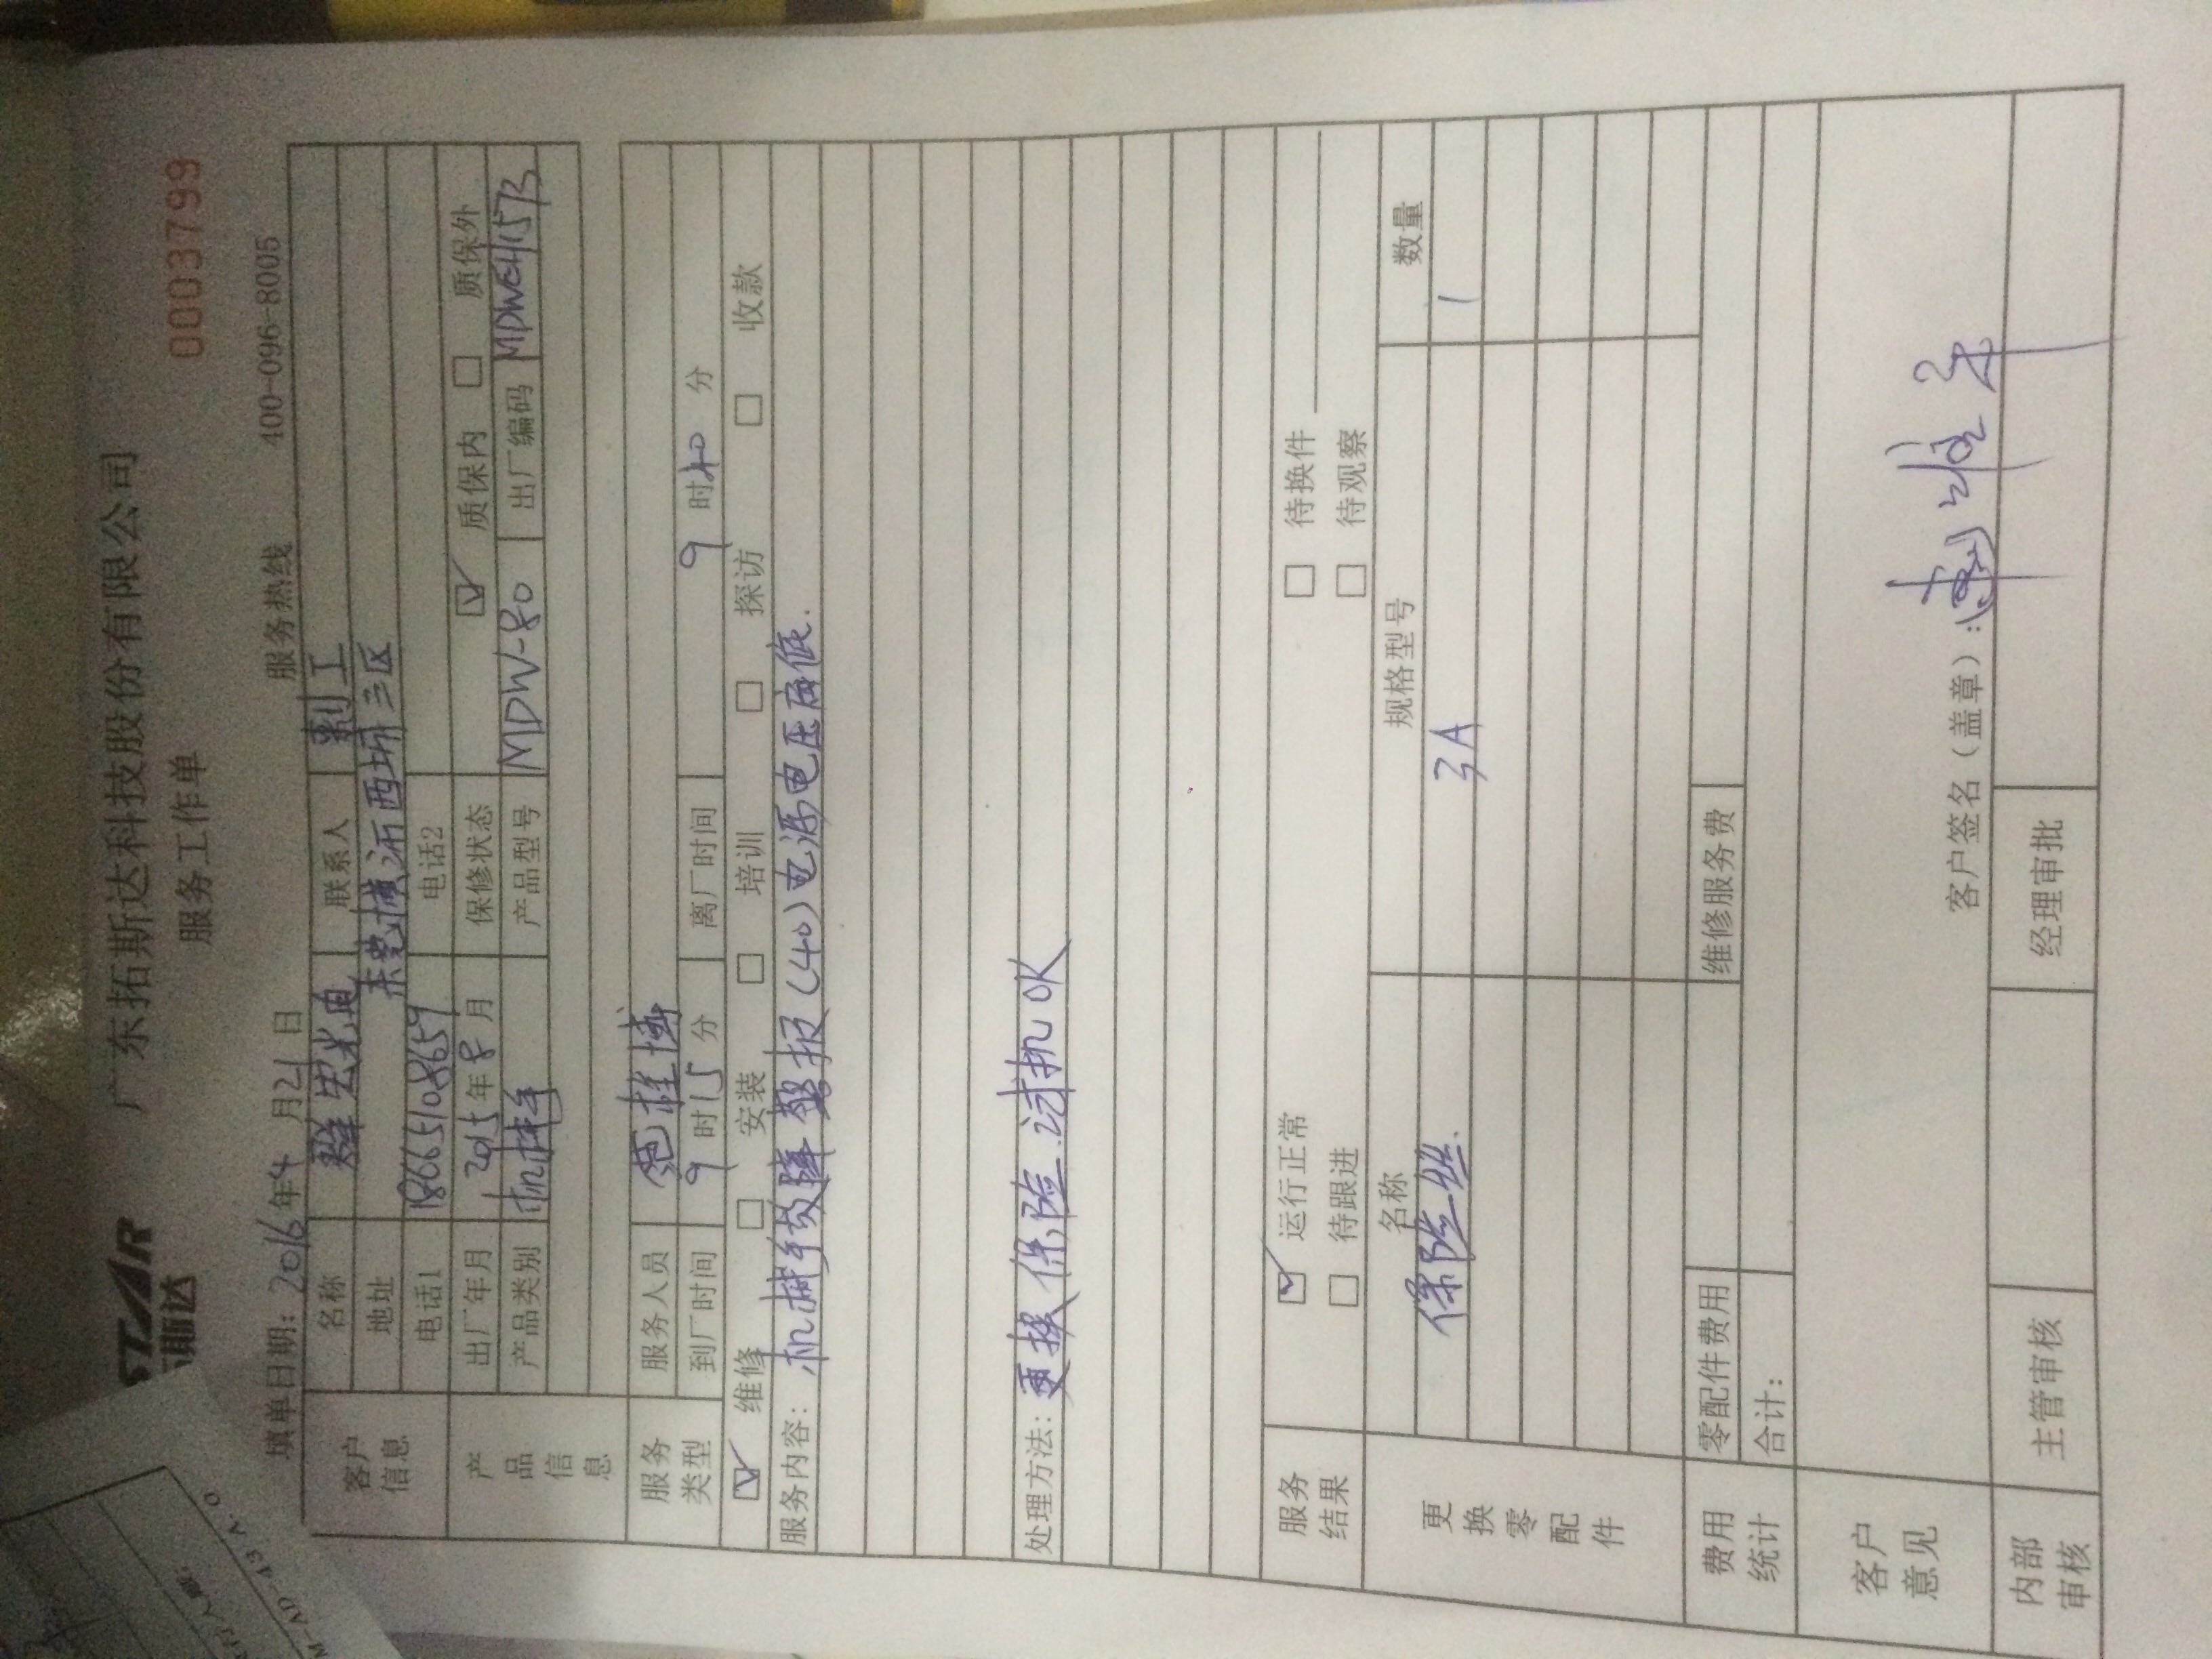 STAR
斯达
广东拓斯达科技股份有限公司
服务工作单
0003799
填单日期: 2016年4月21日 服务热线 400-096-8005
客户信息
名称 群宏光电 联系人 工
地址 东莞横沥西城三区
电话1 18665108659 电话2
产品信息
出厂年月 2015年8月 保修状态 质保内 质保外
产品类别 机械手 产品型号 MDW-80 出厂编码
服务类型
服务人员 范桂博
到厂时间 9时15分 离厂时间 9时40分
维修 安装 培训 探访 收款
服务内容: 机械手故障警报(40)电源电压偏低.
处理方法: 更换保险.试机OK
服务结果
运行正常 待换件
待跟进 待观察
更换零配件
名称 规格型号 数量
保险丝. 3A 1
费用统计
零配件费用 维修服务费
合计:
客户意见
客户签名(盖章):
内部审核 主管审核 经理审批
M-AD-43 A.0